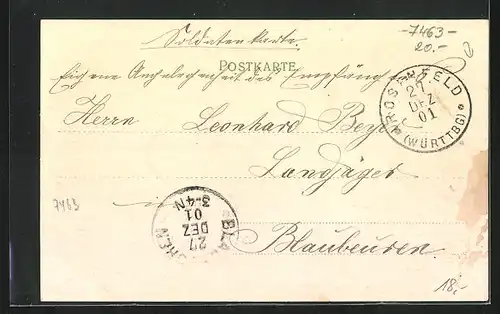 -7463-
20.-
Soldatenkarte.
POSTKARTE
Eigene Angelegenheit des Empfängers
Herrn Leonhard Beyer
Landjäger
in
Blaubeuren.
ROSENFELD
27
DEZ
01
(WÜRTTBG)
7463
27
DEZ
01
3-4N
18,-